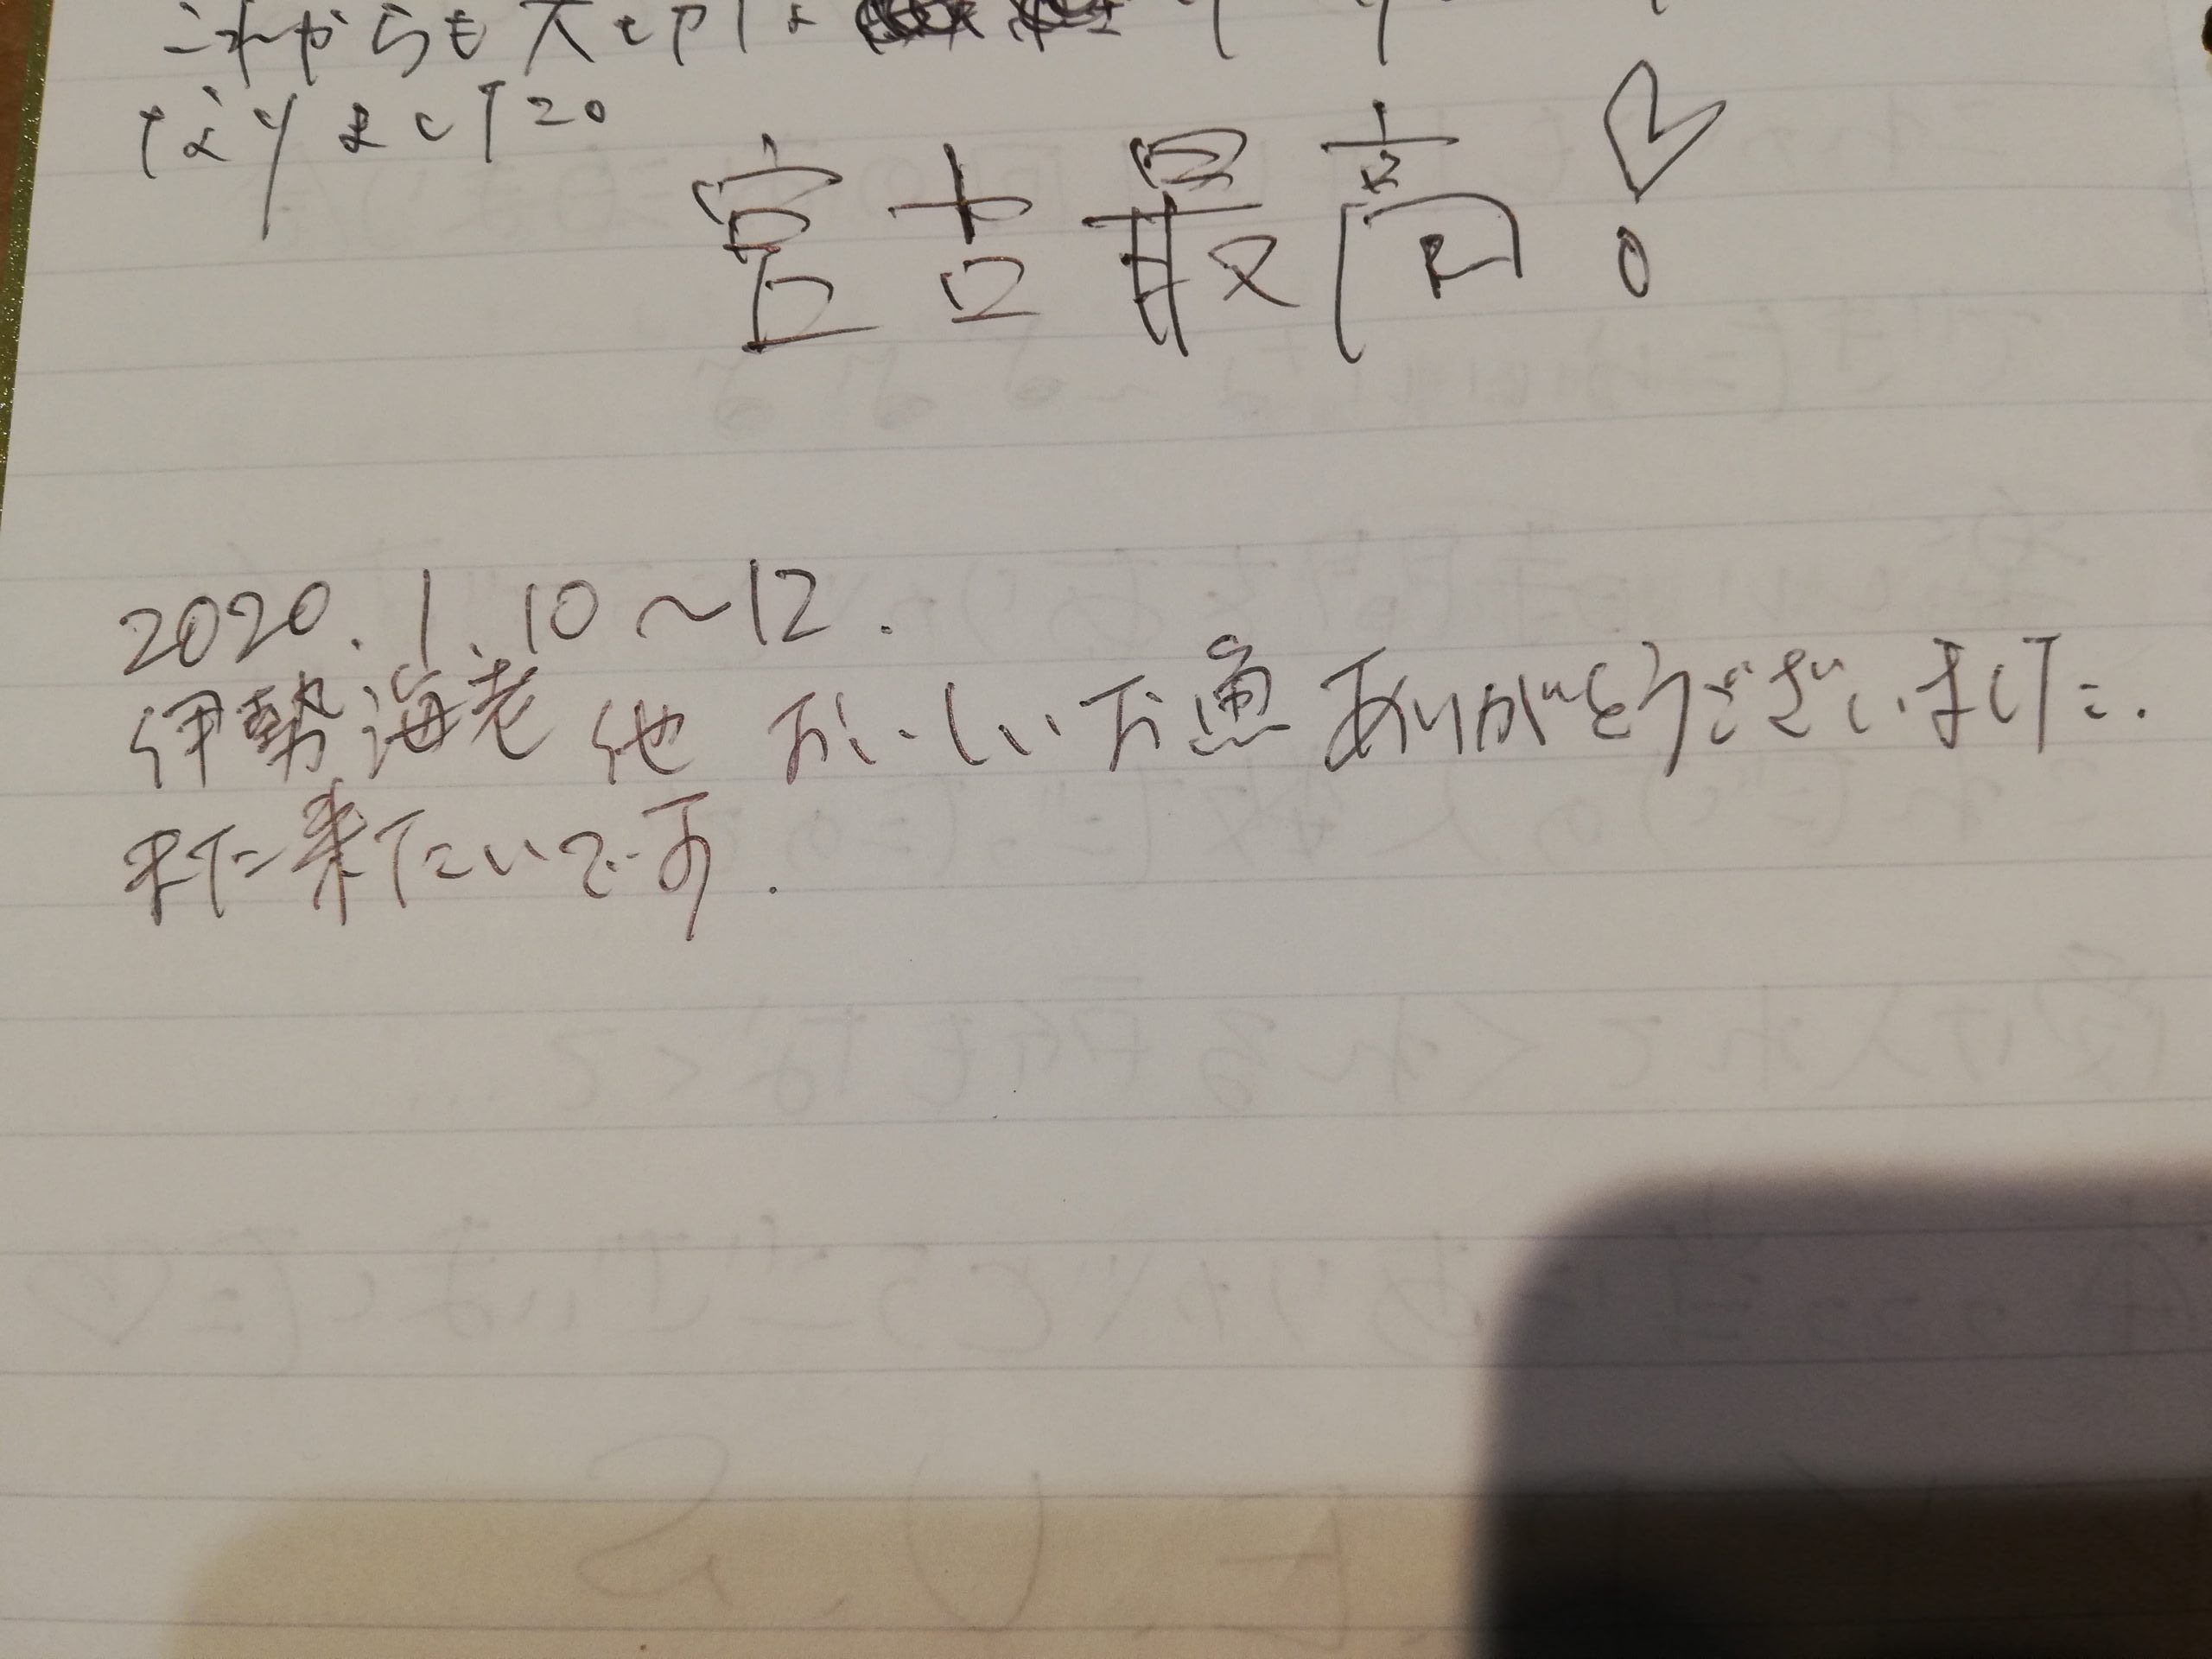 これからも大切な
なりました。
宮古最高!
2020.1.10～12.
伊勢海老他 おいしいお魚ありがとうございました.
また来たいです.